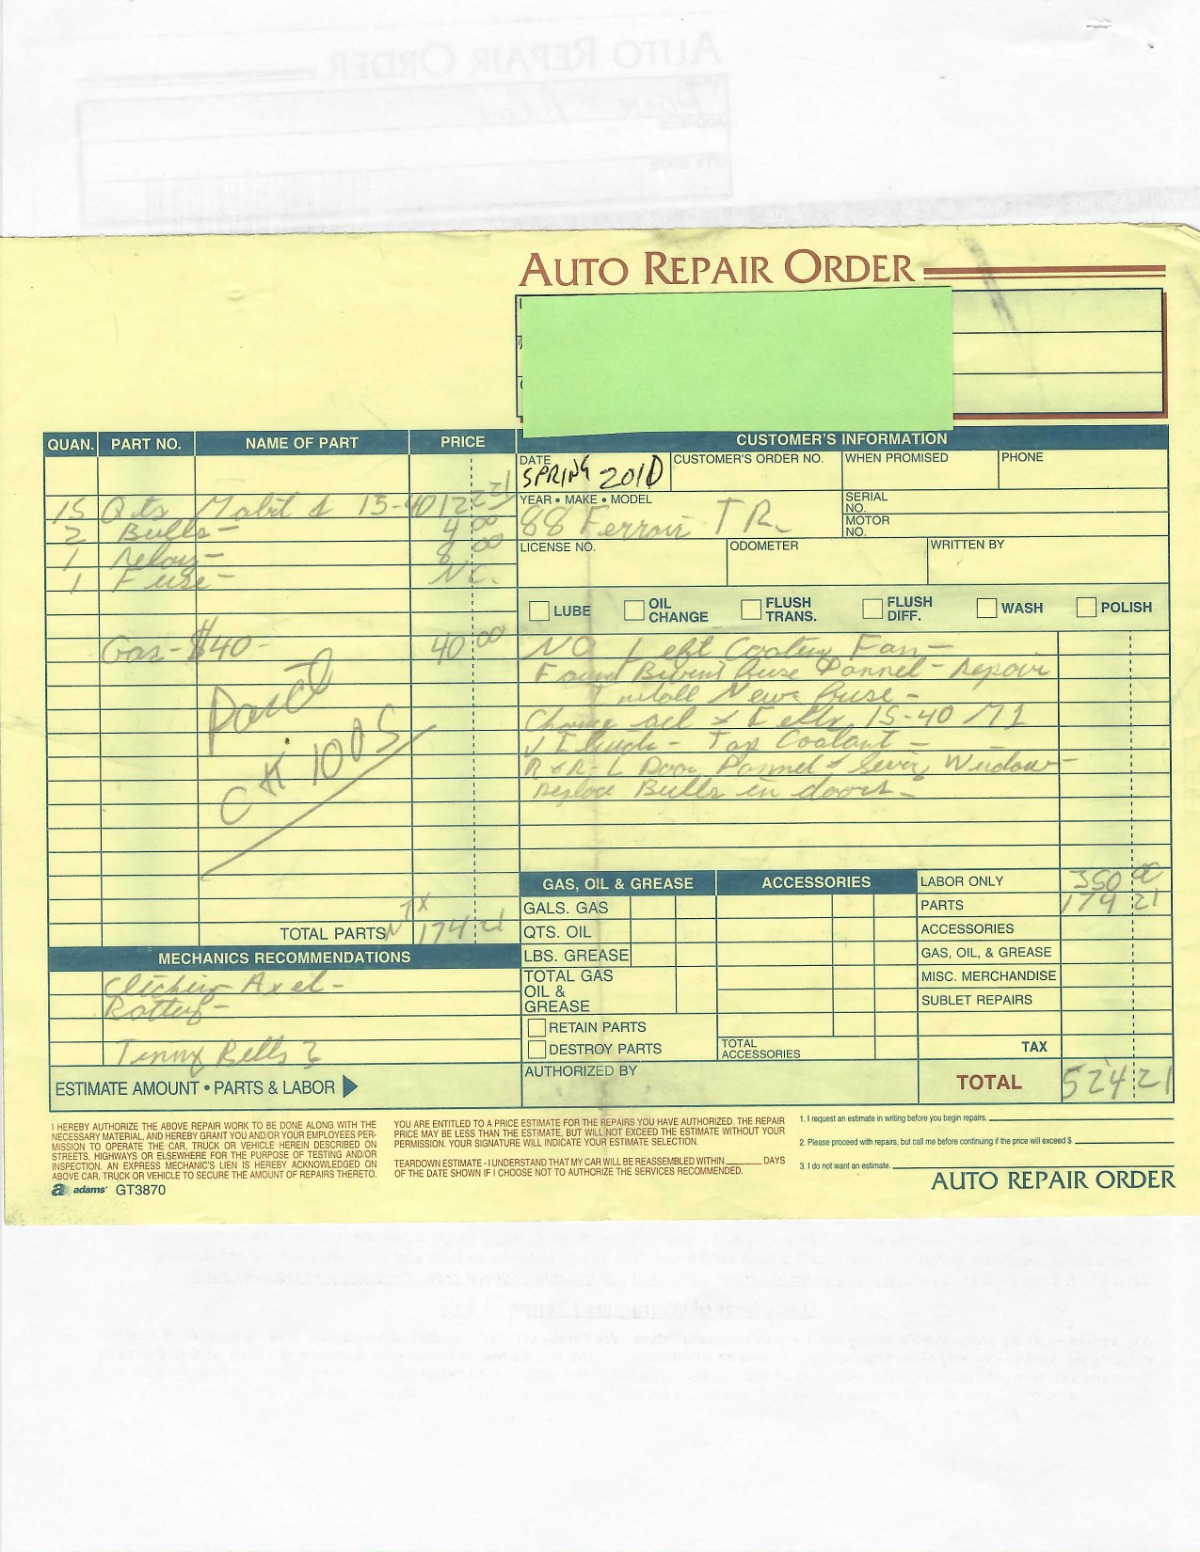 AUTO REPAIR ORDER
CUSTOMER'S INFORMATION
QUAN. PART NO. NAME OF PART PRICE
15 Qts Mobil 1 15-40 122 21
2 Bulbs - 4 00
1 Relay - 8 00
1 Fuse - NC.
Gas - $40 - 40 00
Paid
CK 1005
TX
TOTAL PARTS 174 21
MECHANICS RECOMMENDATIONS
Axel -
Battery -
Belts
ESTIMATE AMOUNT • PARTS & LABOR
DATE SPRING 2010
CUSTOMER'S ORDER NO.
WHEN PROMISED
PHONE
YEAR • MAKE • MODEL
88 Ferrari TR
SERIAL NO.
MOTOR NO.
LICENSE NO.
ODOMETER
WRITTEN BY
LUBE OIL CHANGE FLUSH TRANS. FLUSH DIFF. WASH POLISH
NO Left Cooling Fan -
Found Burnt fuse Pannel - Repair
Install New fuse -
Change oil & Filter 15-40 M1
Top Coolant -
R & R - L Door Pannel & Window -
Replace Bulbs in doors -
GAS, OIL & GREASE
GALS. GAS
QTS. OIL
LBS. GREASE
TOTAL GAS OIL & GREASE
RETAIN PARTS
DESTROY PARTS
AUTHORIZED BY
ACCESSORIES
TOTAL ACCESSORIES
LABOR ONLY 350 00
PARTS 174 21
ACCESSORIES
GAS, OIL, & GREASE
MISC. MERCHANDISE
SUBLET REPAIRS
TAX
TOTAL 524 21
I HEREBY AUTHORIZE THE ABOVE REPAIR WORK TO BE DONE ALONG WITH THE
NECESSARY MATERIAL, AND HEREBY GRANT YOU AND/OR YOUR EMPLOYEES PER-
MISSION TO OPERATE THE CAR, TRUCK OR VEHICLE HEREIN DESCRIBED ON
STREETS, HIGHWAYS OR ELSEWHERE FOR THE PURPOSE OF TESTING AND/OR
INSPECTION. AN EXPRESS MECHANIC'S LIEN IS HEREBY ACKNOWLEDGED ON
ABOVE CAR, TRUCK OR VEHICLE TO SECURE THE AMOUNT OF REPAIRS THERETO.
adams GT3870
YOU ARE ENTITLED TO A PRICE ESTIMATE FOR THE REPAIRS YOU HAVE AUTHORIZED. THE REPAIR
PRICE MAY BE LESS THAN THE ESTIMATE, BUT WILL NOT EXCEED THE ESTIMATE WITHOUT YOUR
PERMISSION. YOUR SIGNATURE WILL INDICATE YOUR ESTIMATE SELECTION.
TEARDOWN ESTIMATE - I UNDERSTAND THAT MY CAR WILL BE REASSEMBLED WITHIN ______ DAYS
OF THE DATE SHOWN IF I CHOOSE NOT TO AUTHORIZE THE SERVICES RECOMMENDED.
1. I request an estimate in writing before you begin repairs.
2. Please proceed with repairs, but call me before continuing if the price will exceed $
3. I do not want an estimate.
AUTO REPAIR ORDER